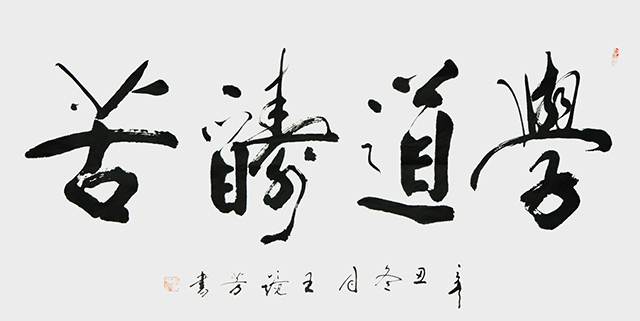 學道醻苦
辛丑冬月王鏡芳書